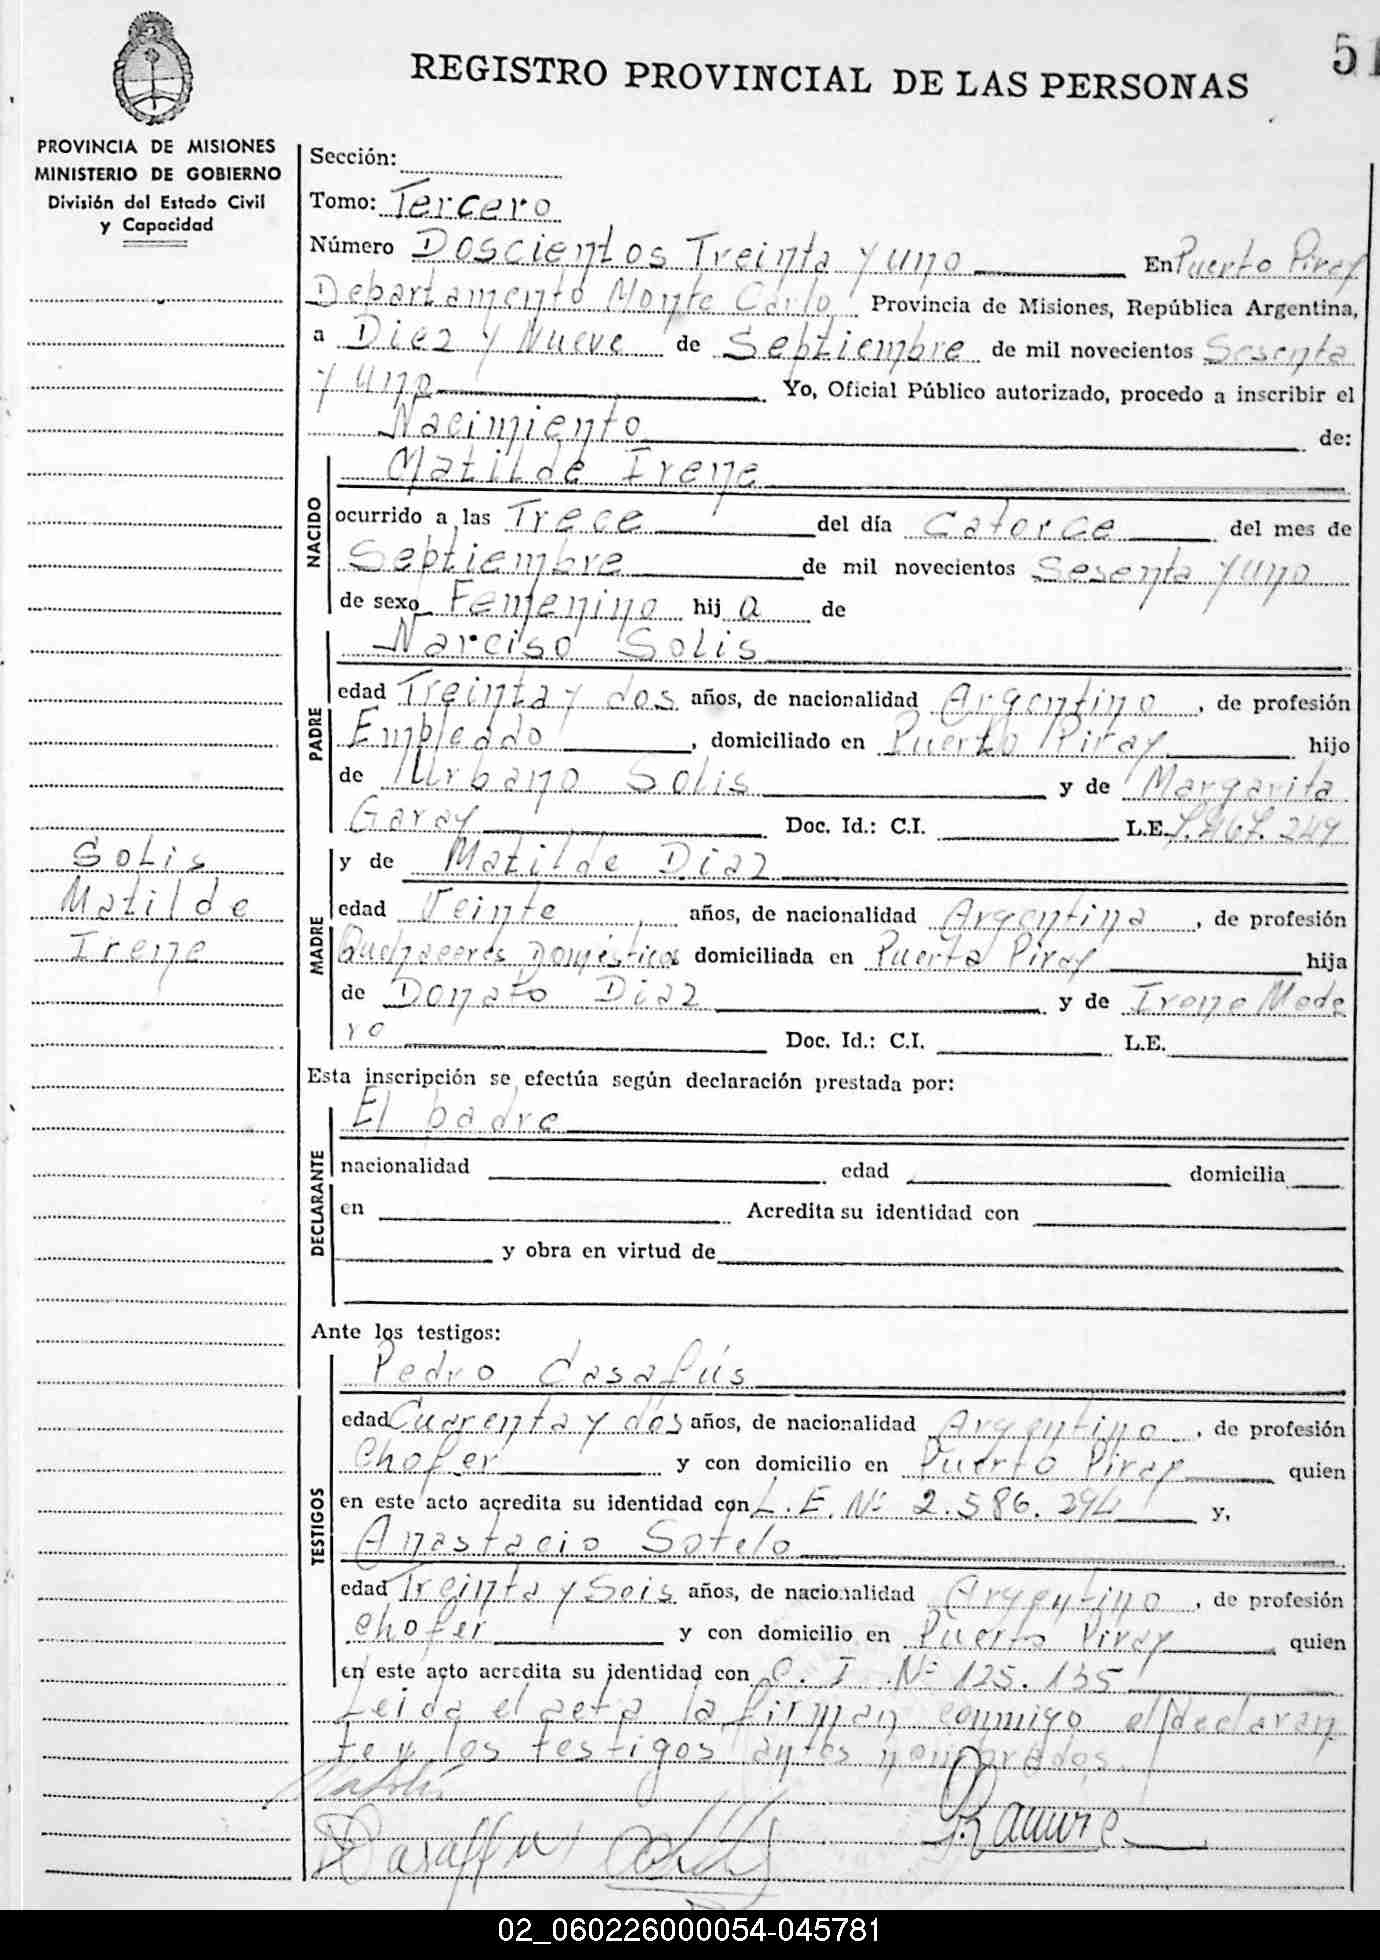 51
REGISTRO PROVINCIAL DE LAS PERSONAS
PROVINCIA DE MISIONES
MINISTERIO DE GOBIERNO
División del Estado Civil
y Capacidad
Solis
Matilde
Irene
Sección:
Tomo: Tercero
Número Doscientos Treinta y uno En Puerto Piray
Departamento Monte Carlo Provincia de Misiones, República Argentina,
a Diez y Nueve de Septiembre de mil novecientos Sesenta
y uno Yo, Oficial Público autorizado, procedo a inscribir el
Nacimiento de:
NACIDO
Matilde Irene
ocurrido a las Trece del día Catorce del mes de
Septiembre de mil novecientos Sesenta y uno
de sexo Femenino hija de
PADRE
Narciso Solis
edad Treinta y dos años, de nacionalidad Argentino, de profesión
Empleado, domiciliado en Puerto Piray hijo
de Urbano Solis y de Margarita
Garay Doc. Id.: C.I. L.E.
MADRE
y de Matilde Diaz
edad Veinte años, de nacionalidad Argentina, de profesión
Quehaceres Domésticos domiciliada en Puerto Piray hija
de Donato Diaz y de Irene Mede
ro Doc. Id.: C.I. L.E.
Esta inscripción se efectúa según declaración prestada por:
DECLARANTE
El padre
nacionalidad edad domicilia
en Acredita su identidad con
y obra en virtud de
Ante los testigos:
TESTIGOS
Pedro Casafús
edad Cuarenta y dos años, de nacionalidad Argentino, de profesión
chofer y con domicilio en Puerto Piray quien
en este acto acredita su identidad con L.E. Nº 2.586.294 y,
Anastacio Sotelo
edad Treinta y Seis años, de nacionalidad Argentino, de profesión
chofer y con domicilio en Puerto Piray quien
en este acto acredita su identidad con C. I. Nº 125.135
Leida el acta la firman conmigo el declaran
te y los testigos antes nombrados.
02_060226000054-045781